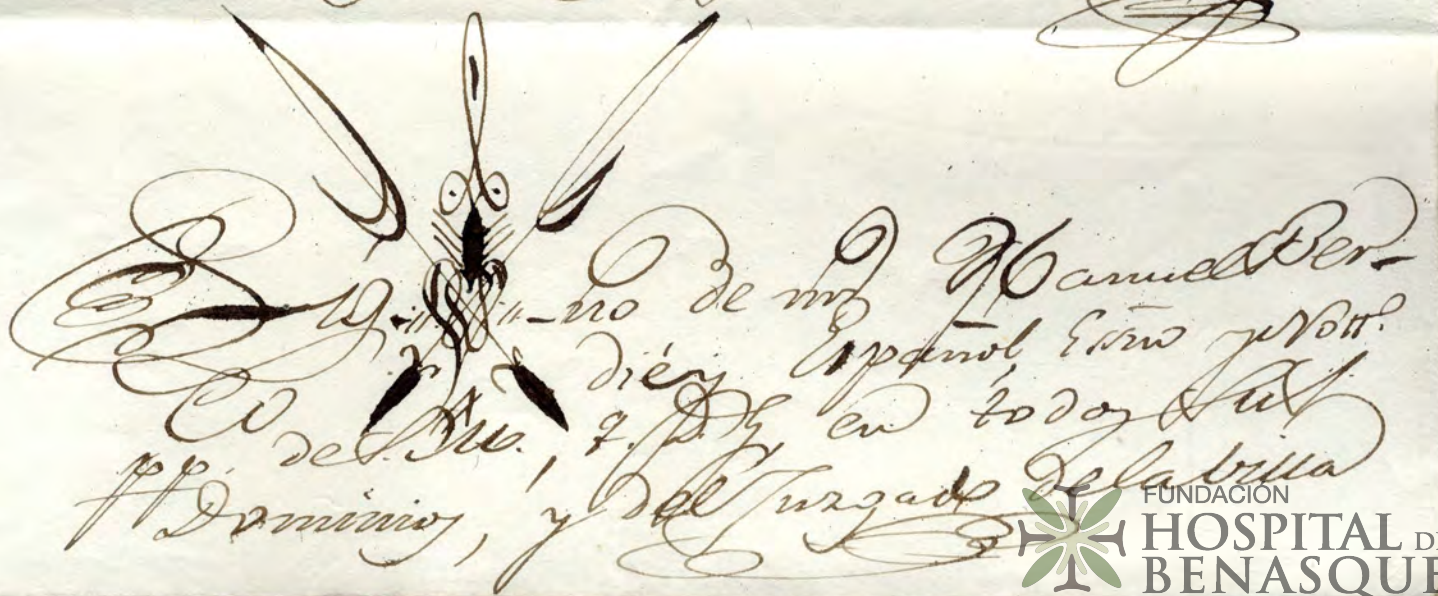 Sig-no de mí Manuel Ber-
diéz Español, Essno y Nottº
pp. co de S. M., q. D. G., en todos sus
Dominios, y del Juzgado de la villa
FUNDACIÓN
HOSPITAL DE
BENASQUE